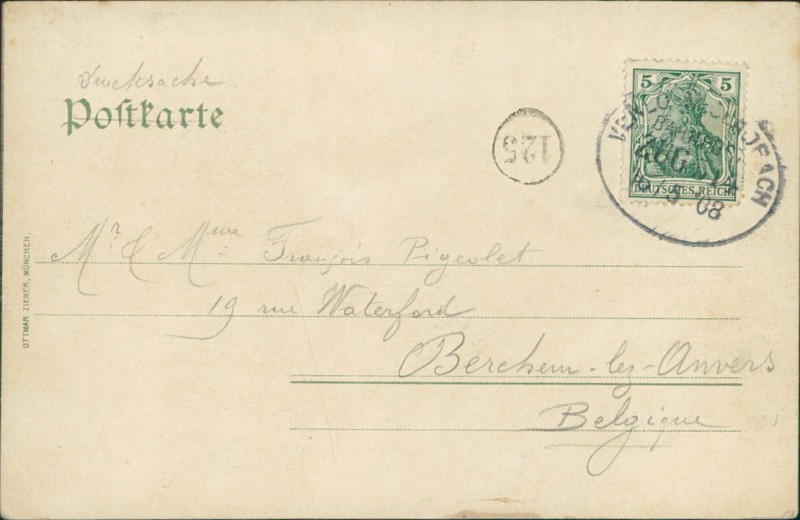 Drucksache.
Postkarte
125
5 5
DEUTSCHES REICH
VENLO
BAHNPOST
ZUG
08
Mr. & Mme. François Pigeolet
19 rue Waterford
Berchem-lez-Anvers
Belgique
OTTMAR ZIEHER, MÜNCHEN.